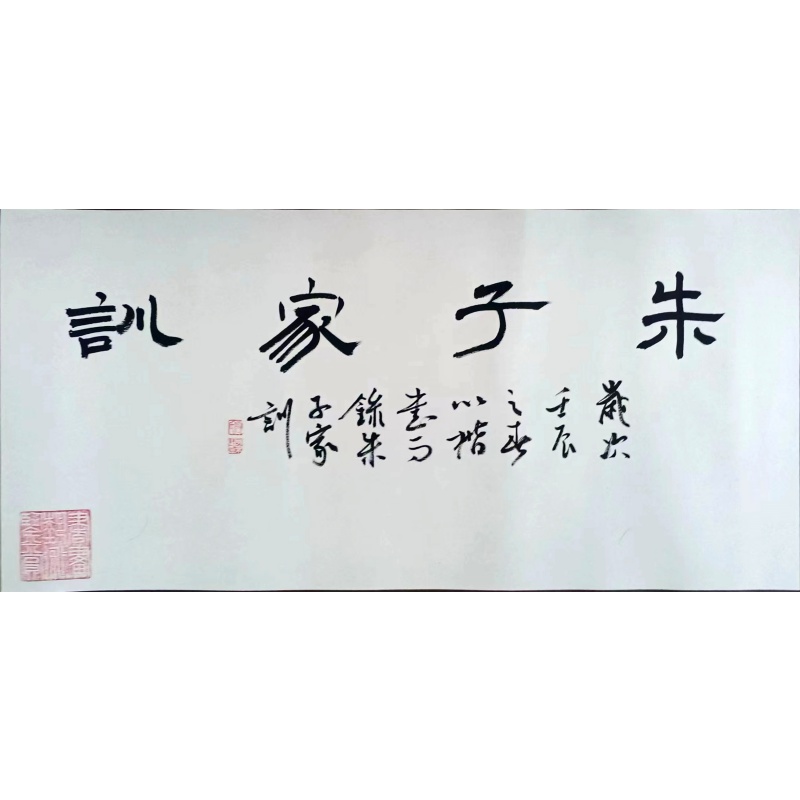 朱子家訓
歲次
壬辰
之春
以楷
書而
錄朱
子家
訓